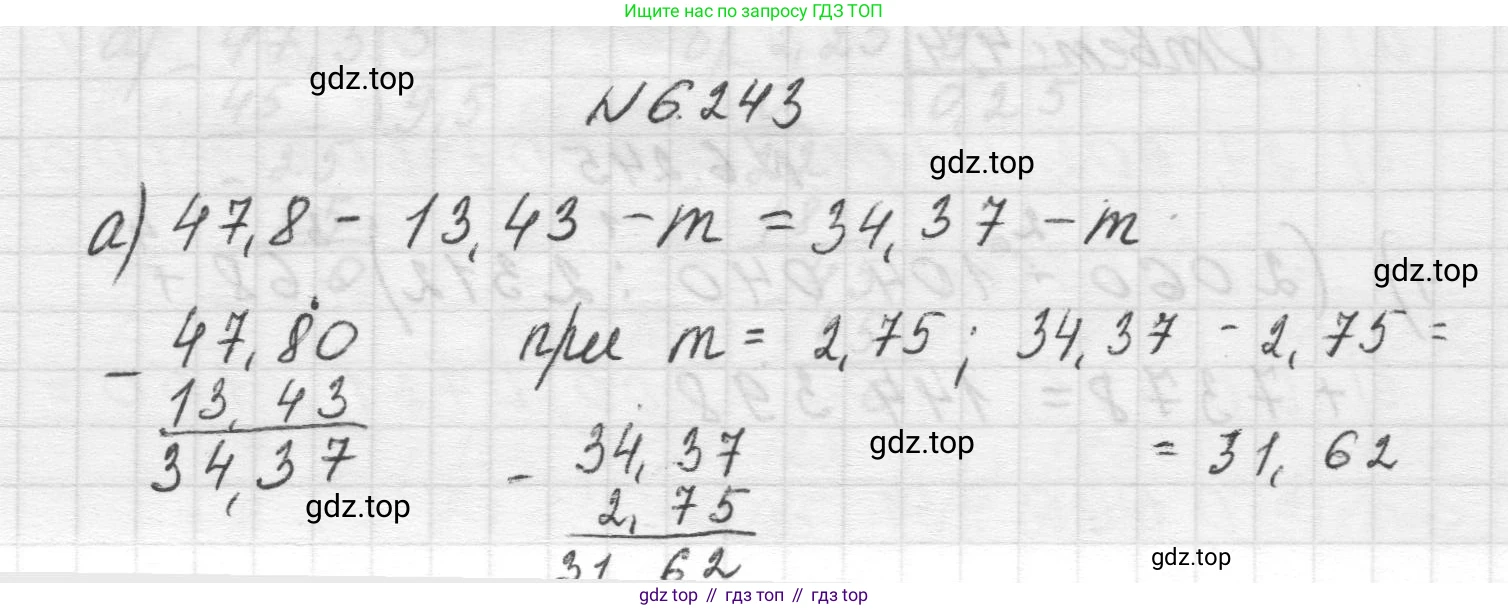 Ищите нас по запросу ГДЗ ТОП
gdz.top
N 6.243
gdz.top
а) 47,8 - 13,43 - m = 34,37 - m
gdz.top
- 47,80
13,43
34,37
gdz.top
при m = 2,75; 34,37 - 2,75 =
= 31,62
- 34,37
2,75
31 62
gdz.top
gdz.top
gdz top // гдз топ // gdz.top